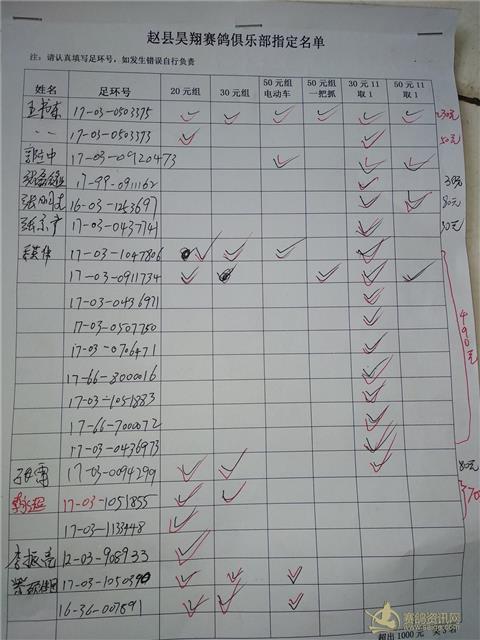 赵县昊翔赛鸽俱乐部指定名单
注：请认真填写足环号，如发生错误自行负责
姓名 足环号 20元组 30元组 50元组电动车 50元组一把抓 30元11取1 50元11取1
17-03-0503375 ✓ ✓ ✓ ✓ ✓ ✓ 230元
17-03-0503373 ✓ ✓ 50元
17-03-0920473 ✓ ✓ ✓
17-99-0911162 ✓ 30元
16-03-1253697 ✓ ✓ 80元
17-03-0437741 ✓ 30元
17-03-1047806 ✓ ✓ ✓ ✓
17-03-0911734 ✓ ✓ ✓ ✓
17-03-0436971 ✓
17-03-0507750 ✓
17-03-0706471 ✓
17-66-8000016 ✓
17-03-1051883 ✓
17-66-7000072 ✓
17-03-0436973 ✓
490元
17-03-0094299 ✓ ✓ ✓ 80元
17-03-1051855 ✓ ✓
17-03-1133448 ✓
李振亮 12-03-908933 ✓
17-03-1050390 ✓ ✓ ✓
16-36-007891 ✓ ✓ ✓
超出1000元
赛鸽资讯网